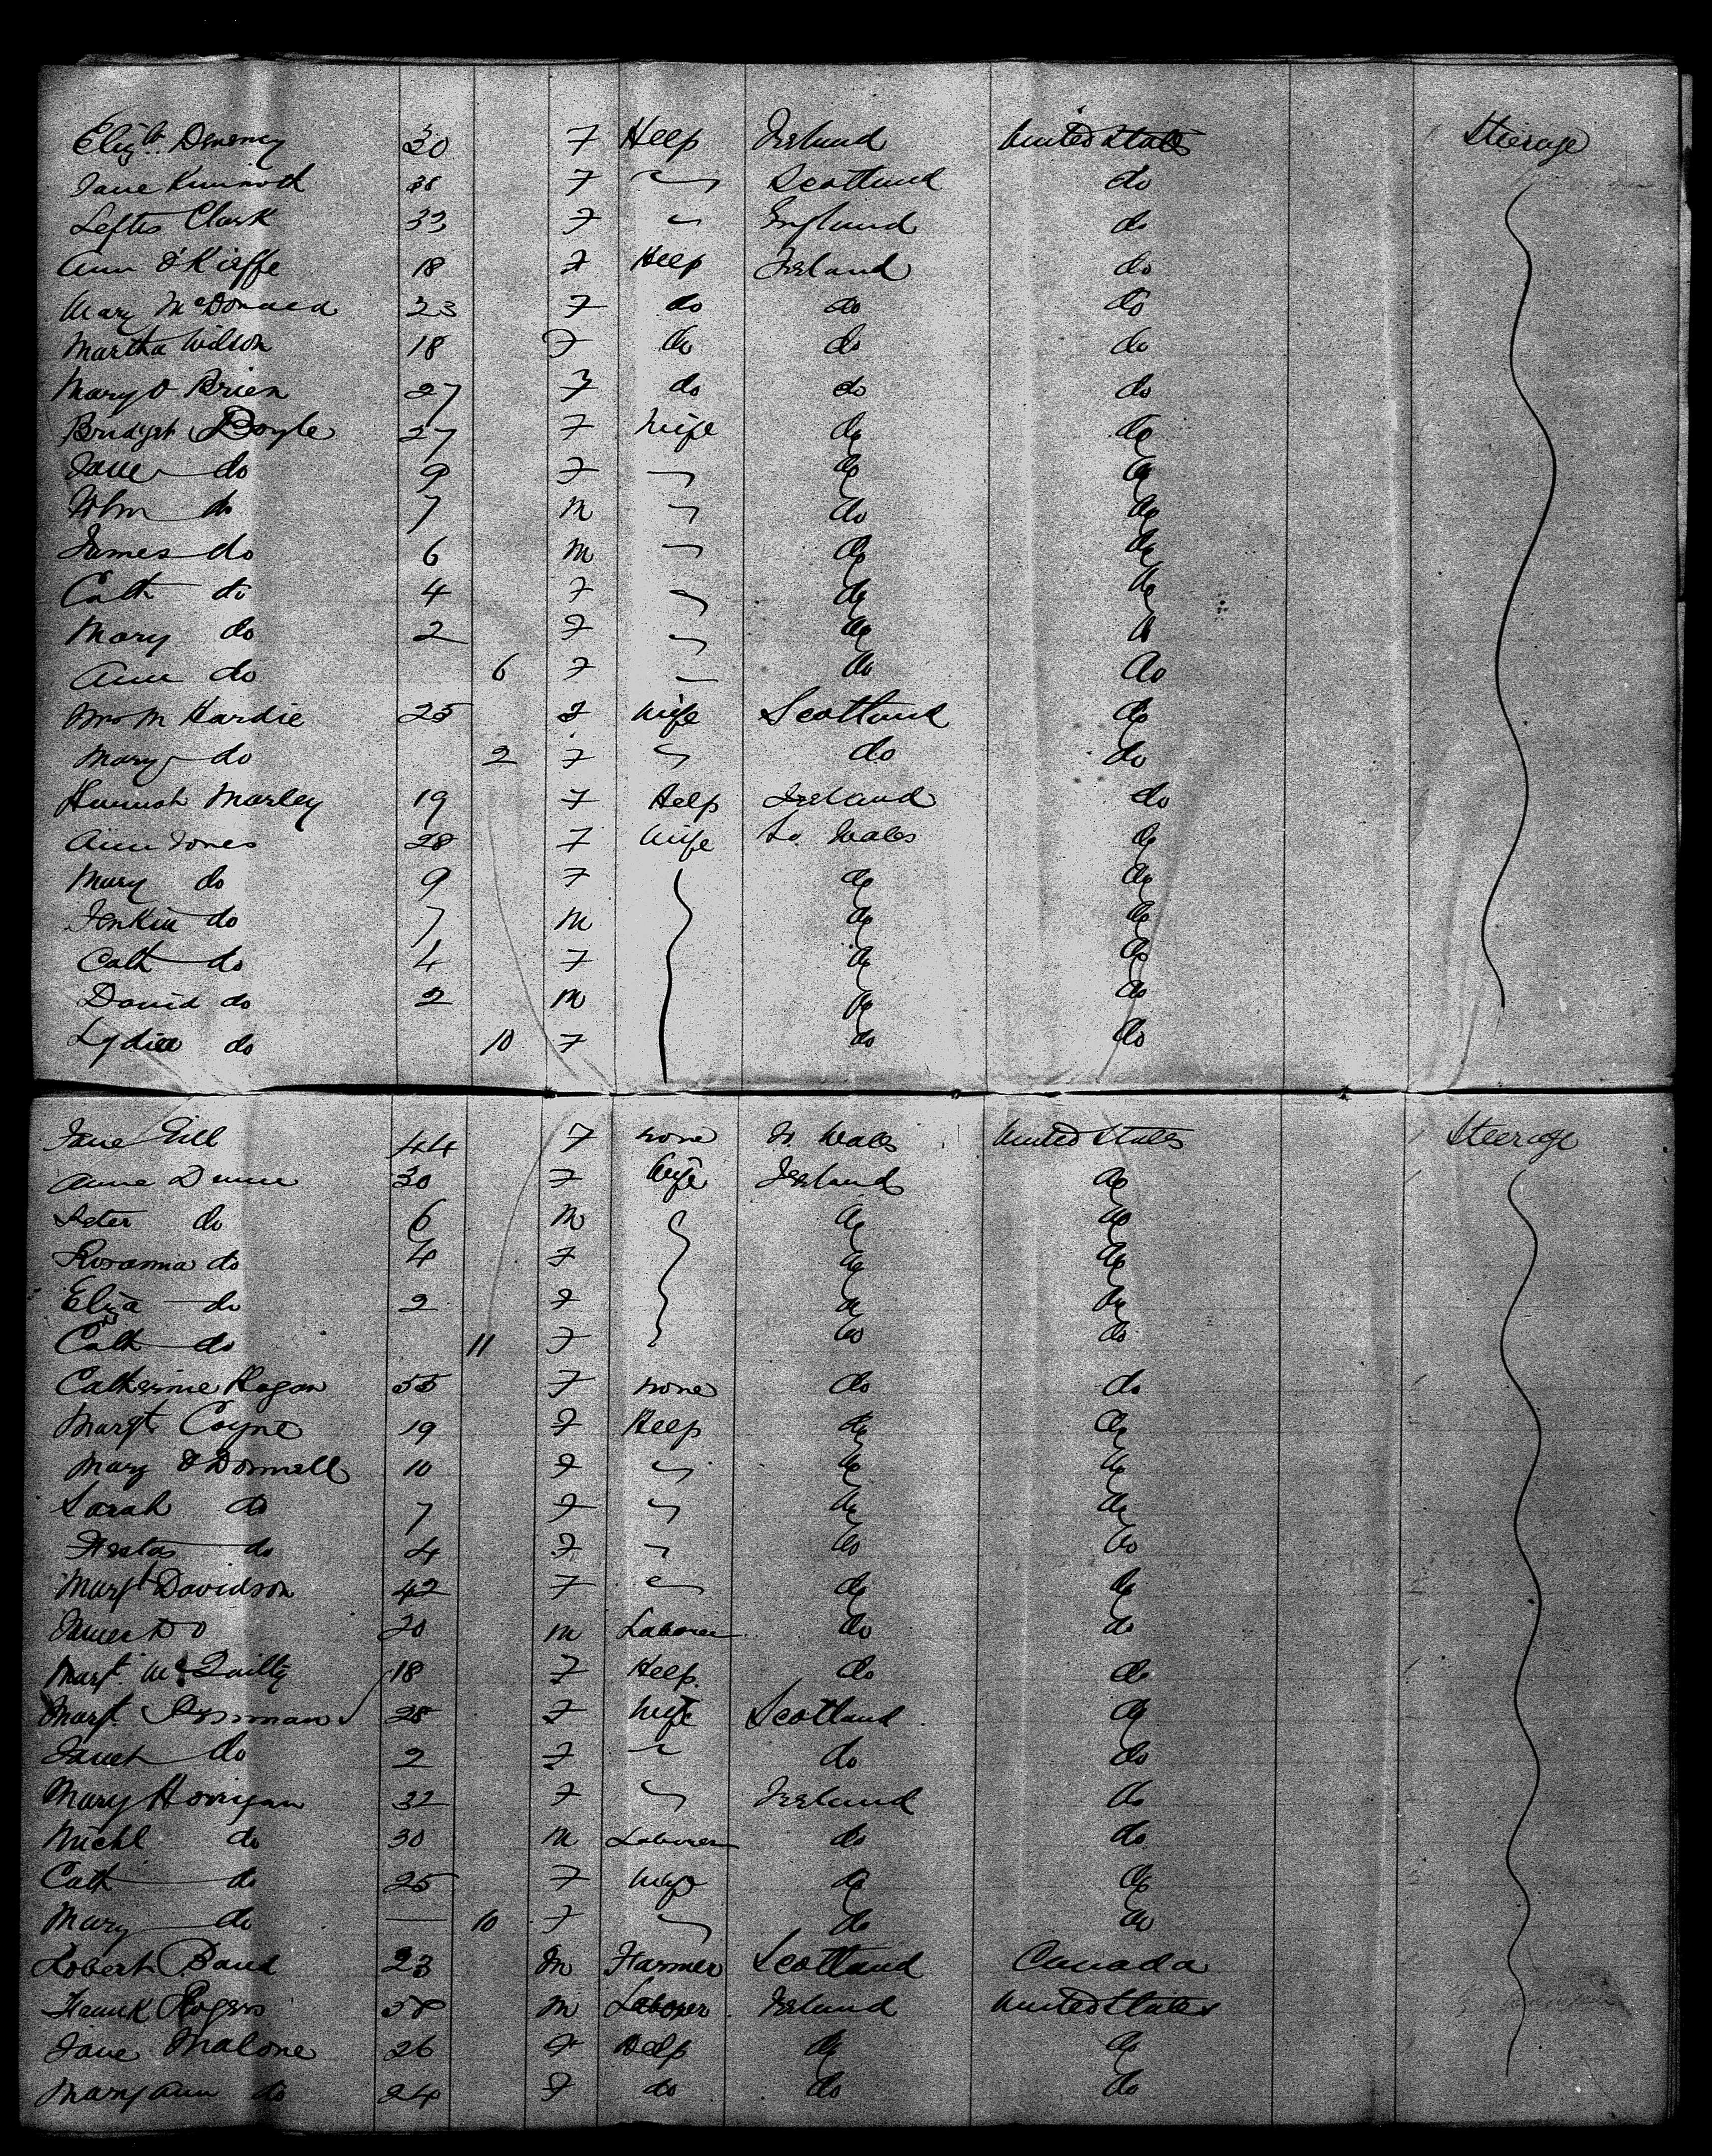 Elizth 30 F Help Ireland United States Steerage
Jane 38 F " Scotland do
Clark 33 F " England do
Ann O'Kieffe 18 F Help Ireland do
Mary McDonald 23 F do do do
Martha Wilson 18 F do do do
Mary O Brien 27 F do do do
Bridget Doyle 27 F Wife do do
Jane do 9 F " do do
John do 7 M " do do
James do 6 M " do do
Cath do 4 F " do do
Mary do 2 F " do do
Ann do 6 F " do do
Mrs M Hardie 25 F Wife Scotland do
Mary do 2 F " do do
Hannah Marley 19 F Help Ireland do
Ann Jones 28 F Wife So. Wales do
Mary do 9 F do do
Jenkin do 7 M do do
Cath do 4 F do do
David do 2 M do do
Lydia do 10 F do do
Jane Gill 44 F none Wales United States Steerage
Anne Dunne 30 F Wife Ireland do
Peter do 6 M do do
Rosanna do 4 F do do
Eliza do 2 F do do
Cath do 11 F do do
Catherine Hogan 55 F none do do
Margt Coyne 19 F Help do do
Mary O'Donnell 10 F " do do
Sarah do 7 F " do do
Festas do 4 F " do do
Margt Davidson 42 F " do do
James Do 20 M Laborer do do
Margt. McQuilty 18 F Help. do do
Margt. 28 F Wife Scotland do
Janet do 2 F " do do
Mary Horrigan 32 F " Ireland do
Michl do 30 M Laborer do do
Cath do 25 F Wife do do
Mary do — 10 F " do do
Robert Baud 23 M Farmer Scotland Canada
Frank Rogers M Laborer Ireland United States
Jane Malone 26 F Help do do
Mary Ann do 24 F do do do